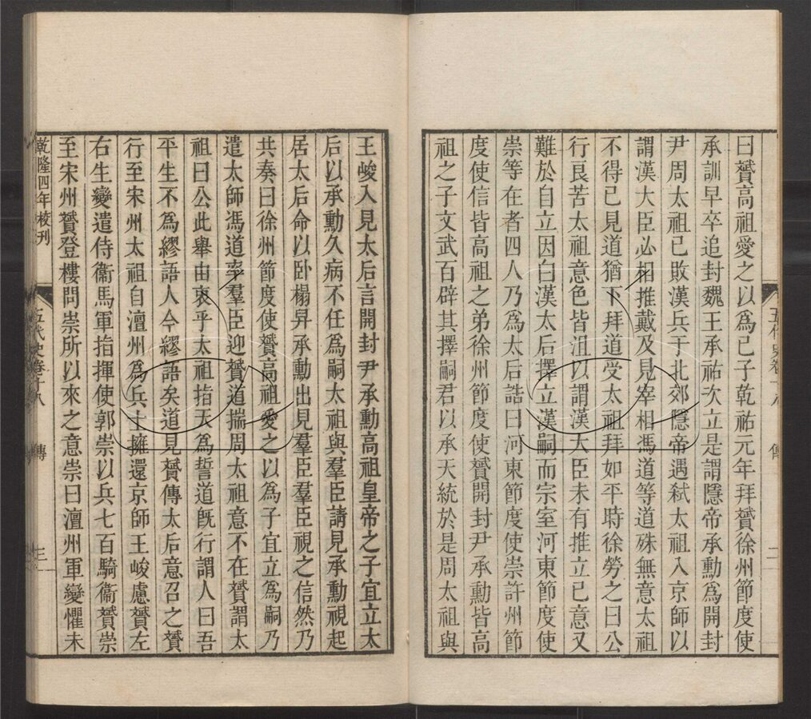 五代史卷十八
傳
二
曰贇高祖愛之以爲己子乾祐元年拜贇徐州節度使
承訓早卒追封魏王承祐次立是謂隱帝承勳爲開封
尹周太祖已敗漢兵于北郊隱帝遇弒太祖入京師以
謂漢大臣必相推戴及見宰相馮道等道殊無意太祖
不得已見道猶下拜道受太祖拜如平時徐勞之曰公
行良苦太祖意色皆沮以謂漢大臣未有推立己意又
難於自立因白漢太后擇立漢嗣而宗室河東節度使
崇等在者四人乃爲太后誥曰河東節度使崇許州節
度使信皆高祖之弟徐州節度使贇開封尹承勳皆高
祖之子文武百辟其擇嗣君以承天統於是周太祖與
王峻入見太后言開封尹承勳高祖皇帝之子宜立太
后以承勳久病不任爲嗣太祖與羣臣請見承勳視起
居太后命以卧榻舁承勳出見羣臣羣臣視之信然乃
共奏曰徐州節度使贇高祖愛之以爲子宜立爲嗣乃
遣太師馮道率羣臣迎贇道揣周太祖意不在贇謂太
祖曰公此舉由衷乎太祖指天爲誓道旣行謂人曰吾
平生不爲繆語人今繆語矣道見贇傳太后意召之贇
行至宋州太祖自澶州爲兵士擁還京師王峻慮贇左
右生變遣侍衞馬軍指揮使郭崇以兵七百騎衞贇崇
至宋州贇登樓問崇所以來之意崇曰澶州軍變懼未
乾隆四年校刊
五代史卷十八
傳
三